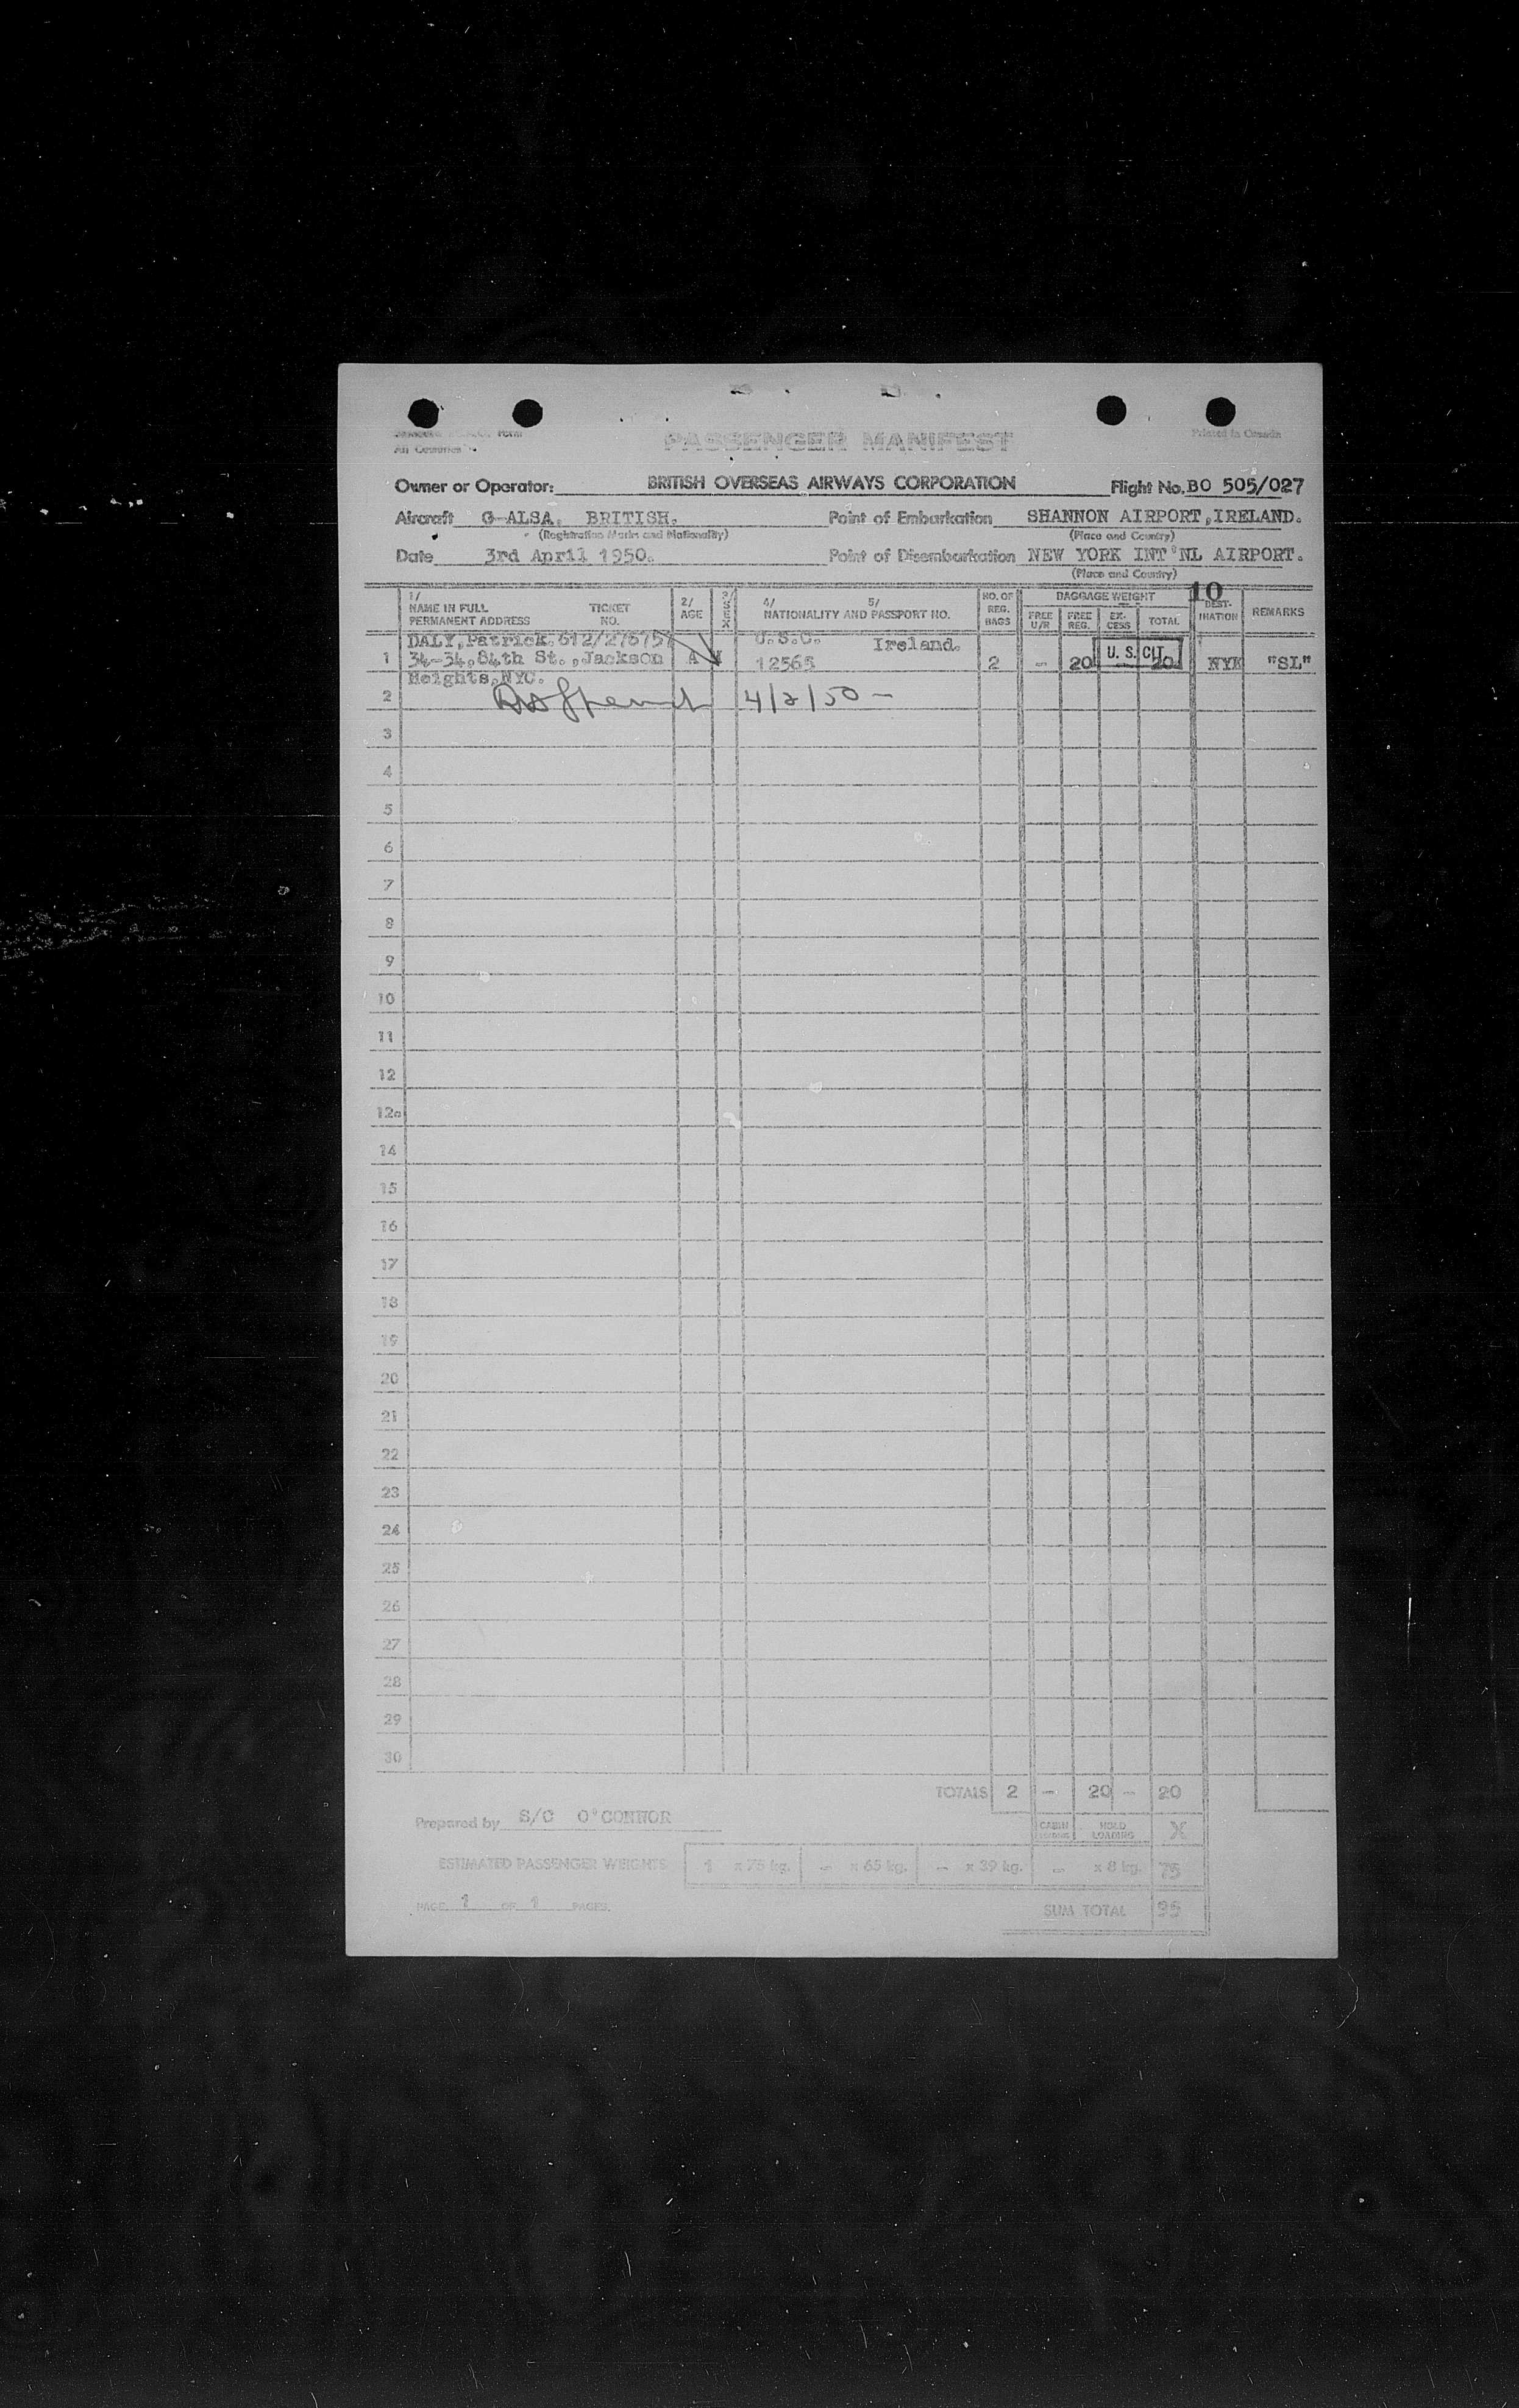 PASSENGER MANIFEST
Printed in Canada
Owner or Operator: BRITISH OVERSEAS AIRWAYS CORPORATION Flight No. BO 505/027
Aircraft G-ALSA. BRITISH. Point of Embarkation SHANNON AIRPORT, IRELAND.
(Registration Marks and Nationality) (Place and Country)
Date 3rd April 1950. Point of Disembarkation NEW YORK INT'NL AIRPORT.
(Place and Country)
10
1/ NAME IN FULL PERMANENT ADDRESS TICKET NO. 2/ AGE 3/ SEX 4/ 5/ NATIONALITY AND PASSPORT NO. NO. OF REG. BAGS BAGGAGE WEIGHT FREE U/R FREE REG. EX-CESS TOTAL DEST-INATION REMARKS
DALY, Patrick. U.S.C. Ireland.
1 34-34, 84th St., Jackson A 12565 2 - 20 - 20 NYK "SL"
U. S. CIT.
Heights, NYC.
2 4/3/50 -
3
4
5
6
7
8
9
10
11
12
12a
14
15
16
17
18
19
20
21
22
23
24
25
26
27
28
29
30
TOTALS 2 - 20 - 20
Prepared by S/C O'CONNOR
CABIN HOLD LOADING X
ESTIMATED PASSENGER WEIGHTS 1 x 75 kg. - x 65 kg. - x 39 kg. - x 8 kg. 75
PAGE 1 OF 1 PAGES.
SUM TOTAL 95